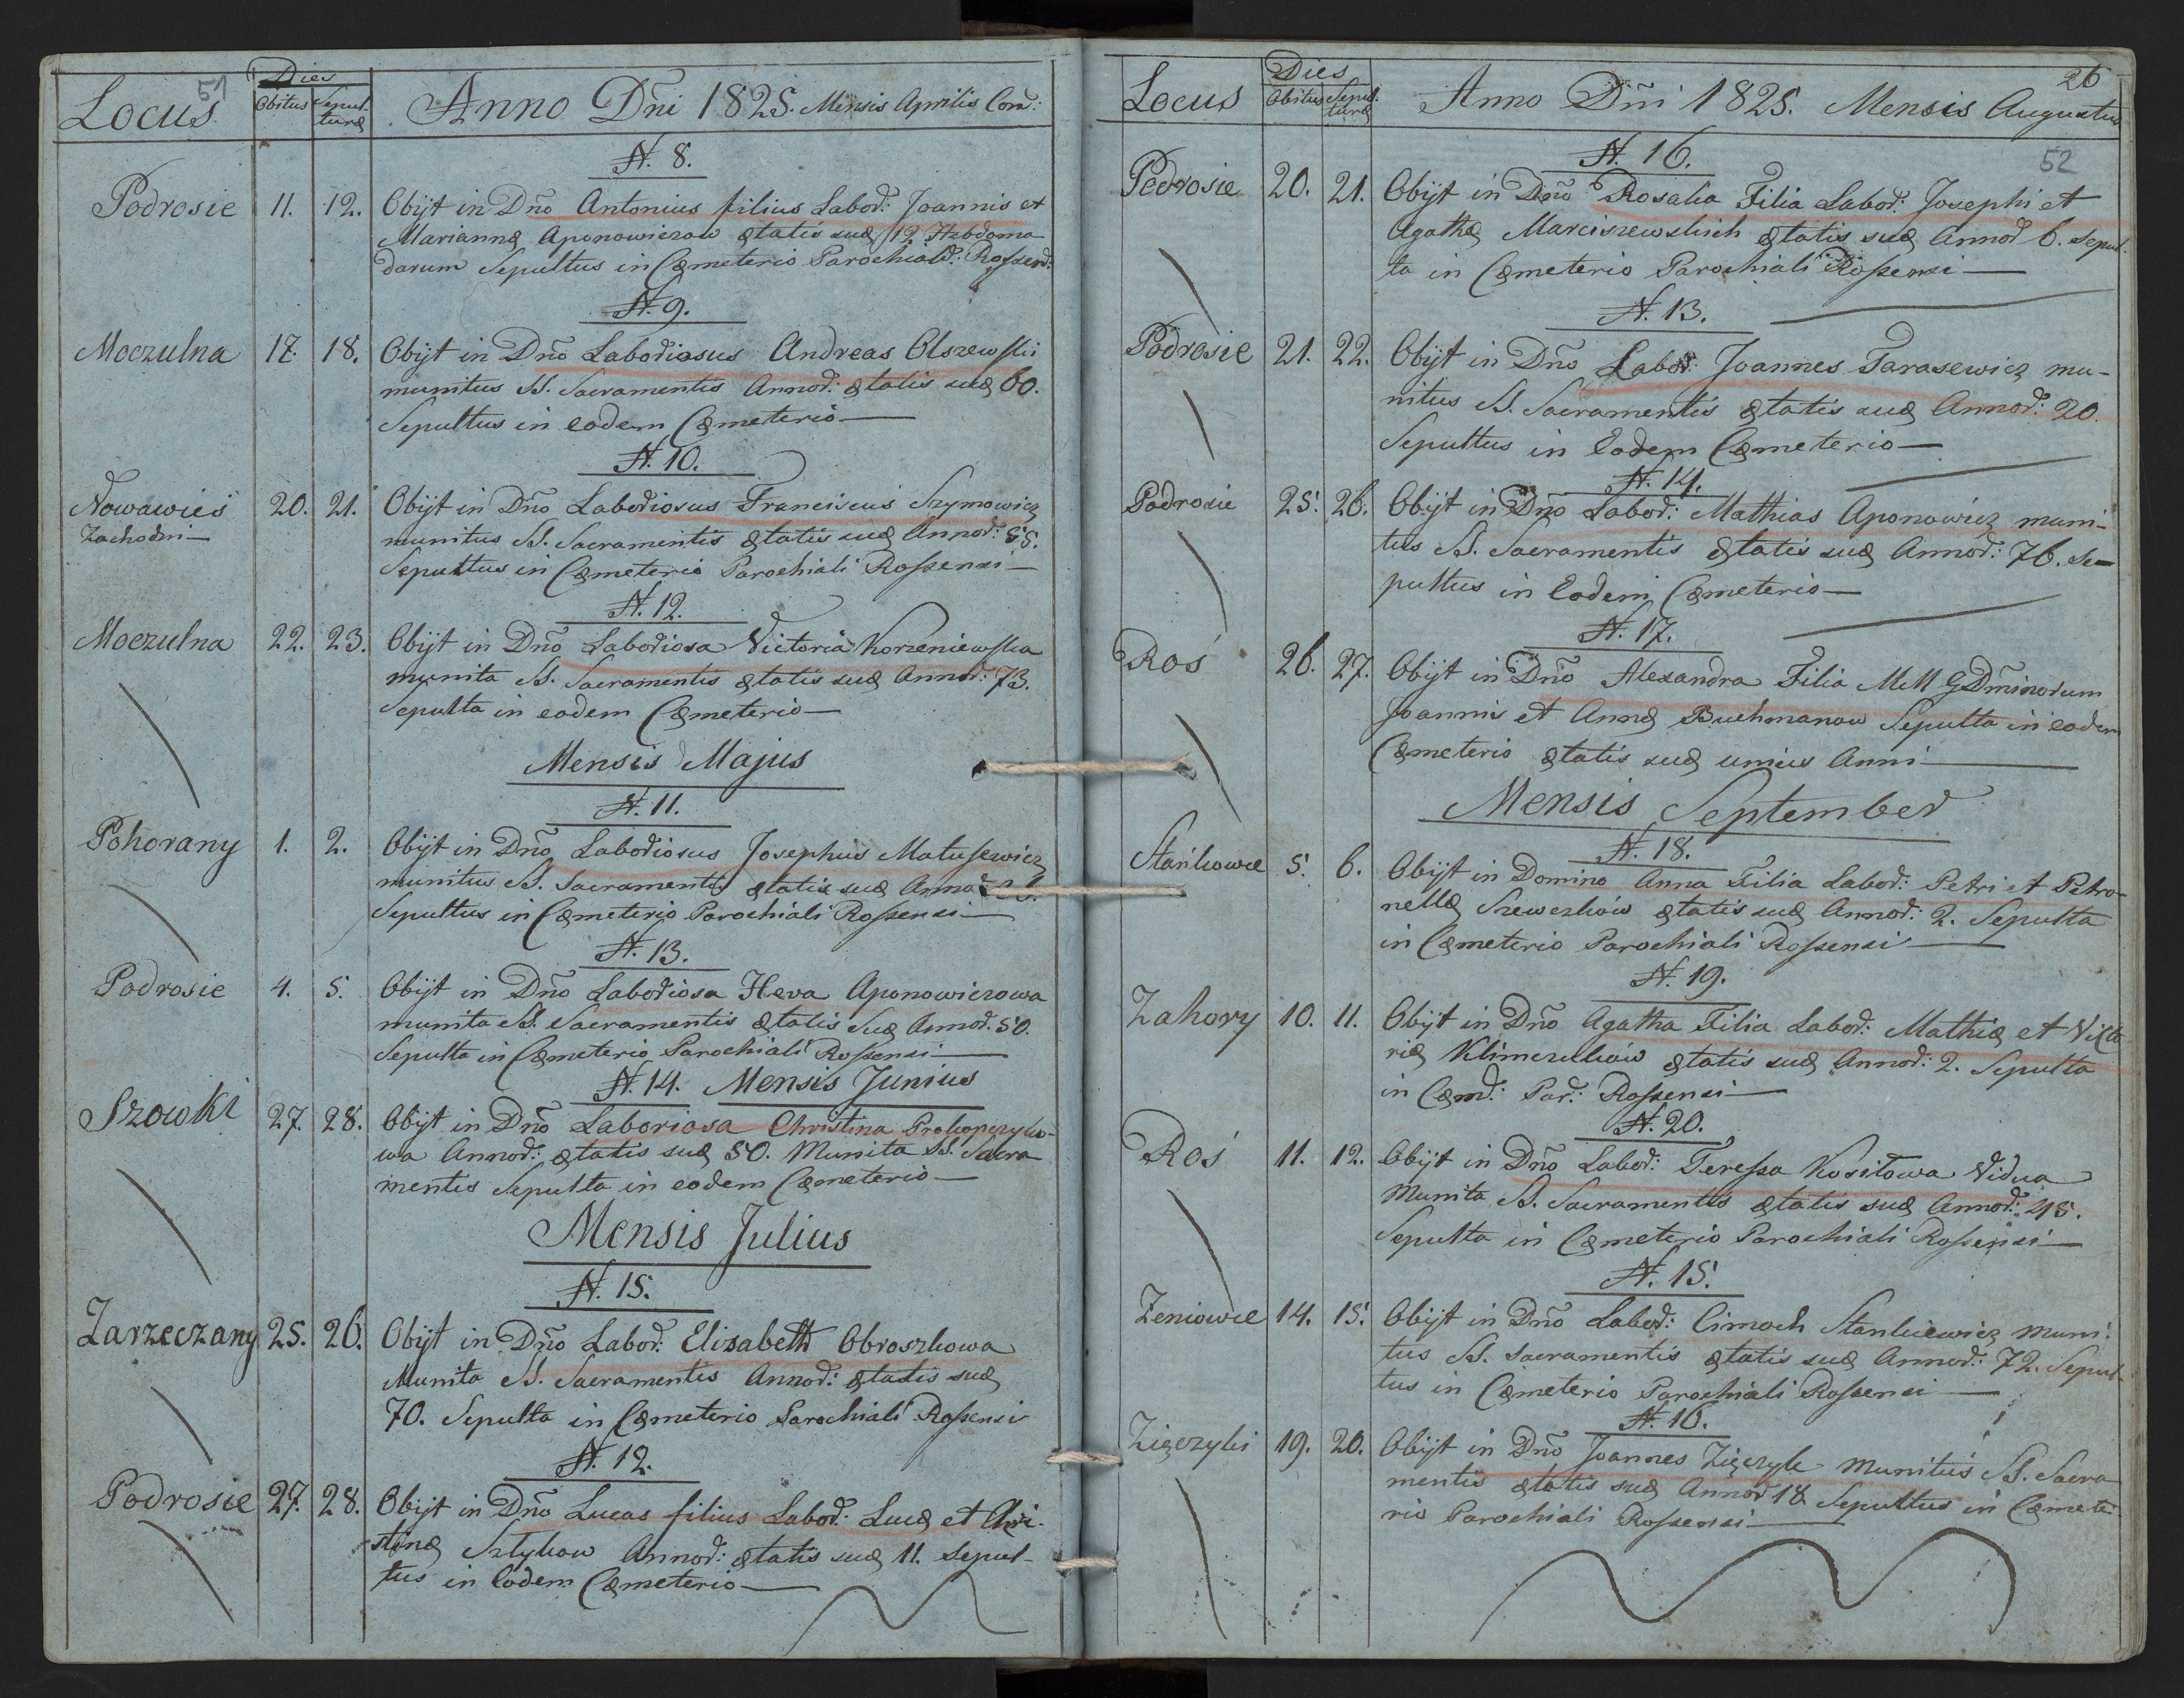 Locus 51 Dies Obitus Sepulturæ Anno Dñi 1825. Mensis Aprilis Con:
N. 8.
Podrosie 11. 12. Obijt in Dño Antonius filius Labor: Joannis et
Mariannæ Aponowiczow ætatis suæ 12 Hebdoma
darum Sepultus in Cæmeterio Parochiali: Rossen:
N. 9.
Moczulna 17. 18. Obijt in Dño Laboriosus Andreas Olszewski
munitus SS. Sacramentis Annor: ætatis suæ 60.
Sepultus in eodem Cæmeterio —
N. 10.
Nowawieś Zachodni — 20. 21. Obijt in Dño Laboriosus Franciscus Szymowicz
munitus SS. Sacramentis ætatis suæ Annor:
Sepultus in Cæmeterio Parochiali Rossensi —
N. 12.
Moczulna 22. 23. Obijt in Dño Laboriosa Victoria Korzeniewska
munita SS. Sacramentis ætatis suæ Annor: 73.
Sepulta in eodem Cæmeterio —
Mensis Majus
N. 11.
Pohorany 1. 2. Obijt in Dño Laboriosus Josephus Matusewicz
munitus SS. Sacramentis ætatis suæ Annor
Sepultus in Cæmeterio Parochiali Rossensi —
N. 13.
Podrosie 4. 5. Obijt in Dño Laboriosa Heva Aponowiczowa
munita SS. Sacramentis ætatis Suæ Annor. 50.
Sepulta in Cæmeterio Parochiali Rossensi —
N. 14. Mensis Junius
Szowki 27. 28. Obijt in Dño Laboriosa Christina Prokopczyko-
wa Annor: ætatis suæ 50. Munita SS. Sacra
mentis Sepulta in eodem Cæmeterio —
Mensis Julius
N. 15.
Zarzeczany 25. 26. Obijt in Dño Labor: Elisabeth Obroszkowa
Munita SS. Sacramentis Annor: ætatis suæ
70. Sepulta in Cæmeterio Parochiali Rossensi
N. 12.
Podrosie 27. 28. Obijt in Dño Lucas filius Labor: Lucæ et Chri-
stinæ Sztykow Annor: ætatis suæ 11. Sepul-
tus in Eodem Cæmeterio —
Locus Dies Obitus Sepulturæ Anno Dñi 1825. Mensis Augustus 26
N. 16. 52
Podrosie 20. 21. Obijt in Dño Rosalia Filia Labor: Josephi et
Agathæ Marciszewskich ætatis suæ Annor 6. Sepul-
ta in Cæmeterio Parochiali Rossensi —
N. 13.
Podrosie 21. 22. Obijt in Dño Labor: Joannes Tarasewicz mu-
nitus SS. Sacramentis ætatis suæ Annor: 20.
Sepultus in Eodem Cæmeterio —
N. 14.
Podrosie 25. 26. Obijt in Dño Labor: Mathias Aponowicz muni-
tus SS. Sacramentis ætatis suæ Annor: 76. Se-
pultus in Eodem Cæmeterio —
N. 17.
Roś 26. 27. Obijt in Dño Alexandra Filia MM GDminorum
Joannis et Annæ Buchmanow Sepulta in eodem
Cæmeterio ætatis suæ unius Anni —
Mensis September
N. 18.
Stańkowce 5. 6. Obijt in Domino Anna Filia Labor: Petri et Petro-
nellæ Szewczków ætatis suæ Annor: 2. Sepulta
in Cæmeterio Parochiali Rossensi —
N. 19.
Zahory 10. 11. Obijt in Dño Agatha Filia Labor: Mathiæ et Victo-
riæ Klimczuków ætatis suæ Annor: 2. Sepulta
in Cæm: Par: Rossensi —
N. 20.
Roś 11. 12. Obijt in Dño Labor: Teressa Kosiłowa Vidua
Munita SS. Sacramentis ætatis suæ Annor: 45.
Sepulta in Cæmeterio Parochiali Rossensi —
N. 15.
Zeniowce 14. 15. Obijt in Dño Labor: Cimoch Stankiewicz Muni-
tus SS. Sacramentis ætatis suæ Annor: 72. Sepul-
tus in Cæmeterio Parochiali Rossensi —
N. 16.
Zięczyki 19. 20. Obijt in Dño Joannes Zięczyk Munitus SS. Sacra
mentis ætatis suæ Annor 18 Sepultus in Cæmete-
rio Parochiali Rossensi —